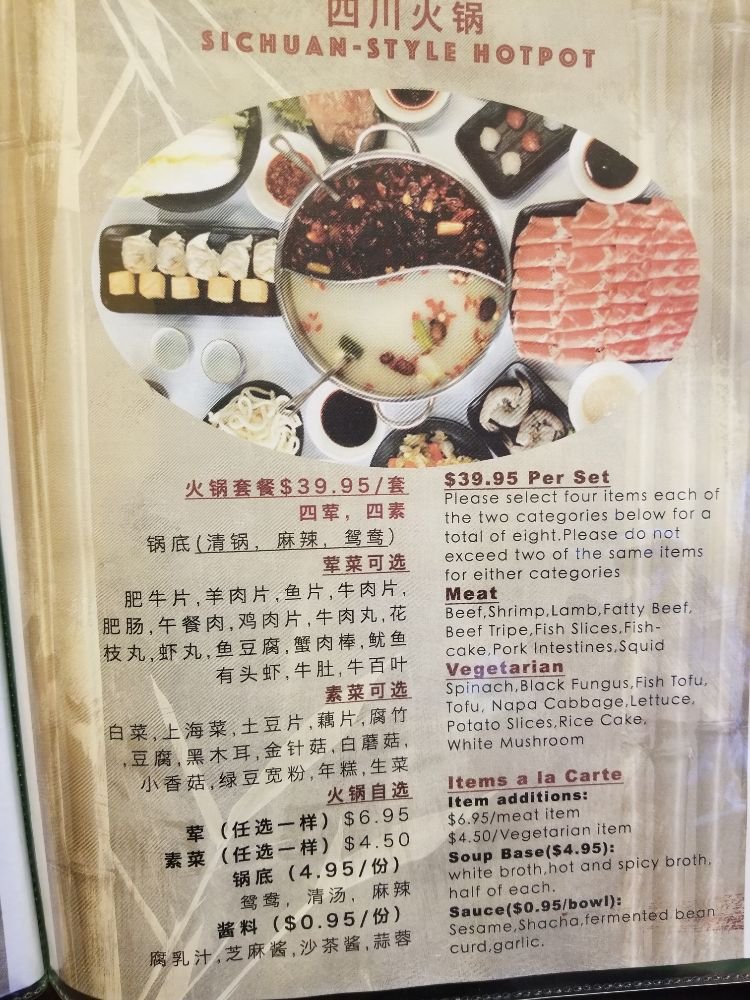 四川火锅
SICHUAN-STYLE HOTPOT
火锅套餐$39.95/套
四荤，四素
锅底(清锅，麻辣，鸳鸯)
荤菜可选
肥牛片,羊肉片,鱼片,牛肉片,
肥肠,午餐肉,鸡肉片,牛肉丸,花
枝丸,虾丸,鱼豆腐,蟹肉棒,鱿鱼
有头虾,牛肚,牛百叶
素菜可选
白菜,上海菜,土豆片,藕片,腐竹
,豆腐,黑木耳,金针菇,白蘑菇,
小香菇,绿豆宽粉,年糕,生菜
火锅自选
荤（任选一样）$6.95
素菜（任选一样）$4.50
锅底（4.95/份）
鸳鸯，清汤，麻辣
酱料（$0.95/份）
腐乳汁,芝麻酱,沙茶酱,蒜蓉
$39.95 Per Set
Please select four items each of
the two categories below for a
total of eight.Please do not
exceed two of the same items
for either categories
Meat
Beef,Shrimp,Lamb,Fatty Beef,
Beef Tripe,Fish Slices,Fish-
cake,Pork Intestines,Squid
Vegetarian
Spinach,Black Fungus,Fish Tofu,
Tofu, Napa Cabbage,Lettuce,
Potato Slices,Rice Cake,
White Mushroom
Items a la Carte
Item additions:
$6.95/meat item
$4.50/Vegetarian item
Soup Base($4.95):
white broth,hot and spicy broth,
half of each.
Sauce($0.95/bowl):
Sesame,Shacha,fermented bean
curd,garlic.